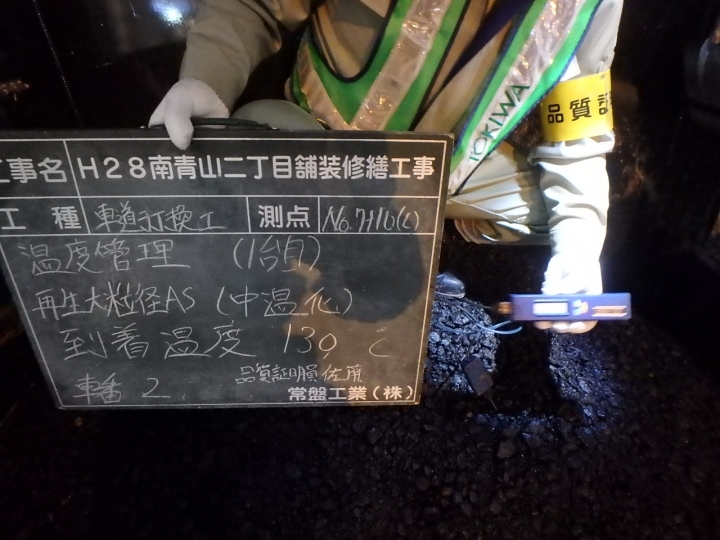 TOKIWA
品質証
工事名 H28南青山二丁目舗装修繕工事
工種 車道打換工 測点 No.7+10(L)
温度管理 (1台目)
再生大粒径AS (中温化)
到着温度 139℃
車番 2. 品質証明員 佐藤
常盤工業(株)